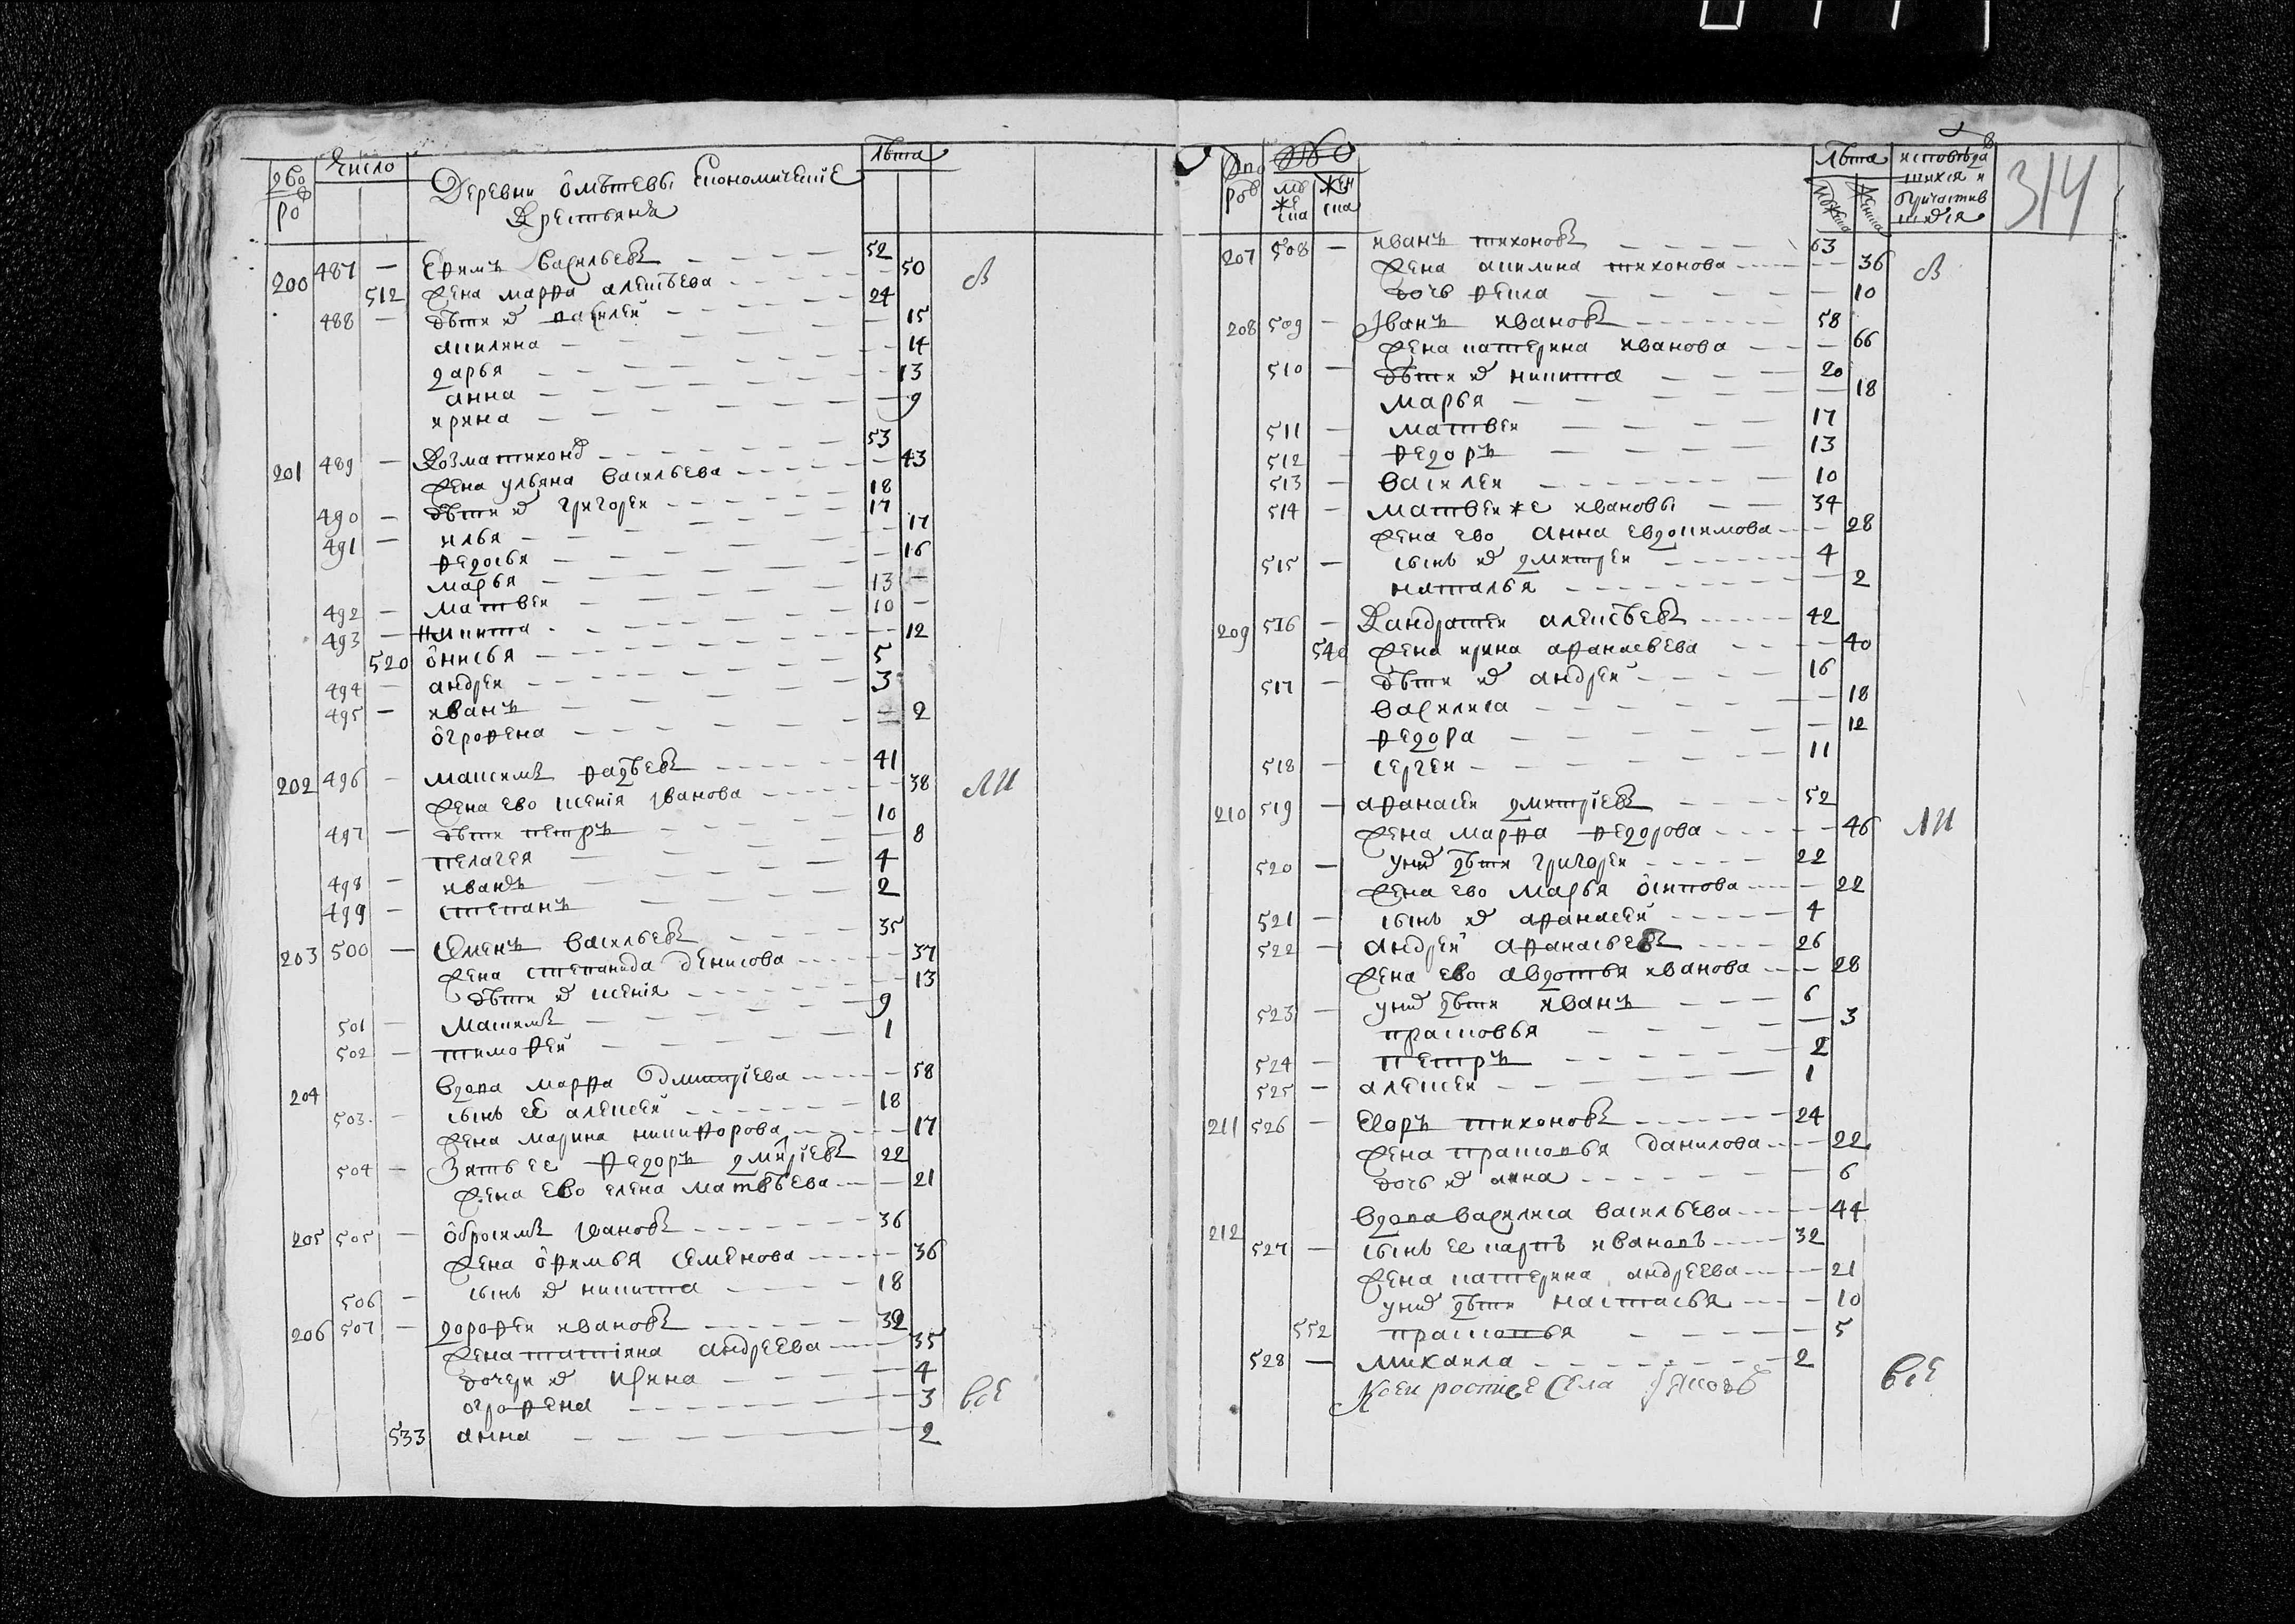 дворов Число Деревни Омѣтевы Економические лѣта
Крестьяня
200 487 — Ефимъ Васильевъ 52
жена марфа алексѣева 50 в
512
488 — дѣти их василей 24
акилина 15
дарья 14
анна 13
ирина 9
201 489 — Козма тихонов 53
жена ульяна васильева 43
490 — дѣти их григореи 18
491 — илья 17
федосья 17
марья 16
492 — матвеи 13 —
493 — никита 10 —
520 оникья 12
494 — андреи 5
495 — иванъ 3
огрофена 2
202 496 — максимъ фадѣевъ 41
жена ево ксенія іванова 38 ли
497 — дѣти петръ 10
пелагея 8
498 — иванъ 4
499 — степанъ 2
203 500 — Семенъ васильевъ 35
жена степанида денисова 37
дѣти их ксенія 13
501 — Максимъ 9
502 — тимофей 1
204 вдова марфа дмитріева 58
503 — сынъ её алексей 18
жена марина никифорова 17
504 — Зять ее федоръ дмитріевъ 22
жена ево елена матвѣева 21
205 505 — обросимъ івановъ 36
жена офимья семенова 36
506 — сынъ их никита 18
206 507 — дорофеи ивановъ 32
жена татіяна андреева 35
дочери их ирина 4
огрофена 3 всѣ
533 анна 2
Дворов число мужеска женска лѣта мужеска женска исповѣдавшихся и причастившихся 314
207 508 — иванъ тихоновъ 63
жена акилина тихонова 36 в
дочь фекла 10
208 509 — Іванъ ивановъ 58
жена катерина иванова 66
510 — дѣти их никита 20
марья 18
511 — матвеи 17
512 федоръ 13
513 — василеи 10
514 — матвеи же ивановъ 34
жена ево анна евдокимова 28
515 — сынъ их дмитреи 4
наталья 2
209 516 — Кандратеи алексѣевъ 42
540 жена ирина афанасьева 40
517 — дѣти их андрей 16
василиса 18
федора 12
518 — сергеи 11
210 519 — афанасеи дмитріевъ 52
жена марфа федорова 46 ли
520 — у них дѣти григореи 22
жена ево марья осипова 22
521 — сынъ их афанасей 4
522 — андрей афанасьевъ 26
жена ево авдотья иванова 28
523 — у них дѣти иванъ 6
прасковья 3
524 — петръ 2
525 — алексеи 1
211 526 — Егоръ тихоновъ 24
жена прасковья данилова 22
дочь их анна 6
212 вдова василиса васильева 44
527 — сынъ ее карпъ ивановъ 32
жена катерина андреева 21
у них дѣти настасья 10
552 прасковья 5
528 — михаила 2
всѣ
села